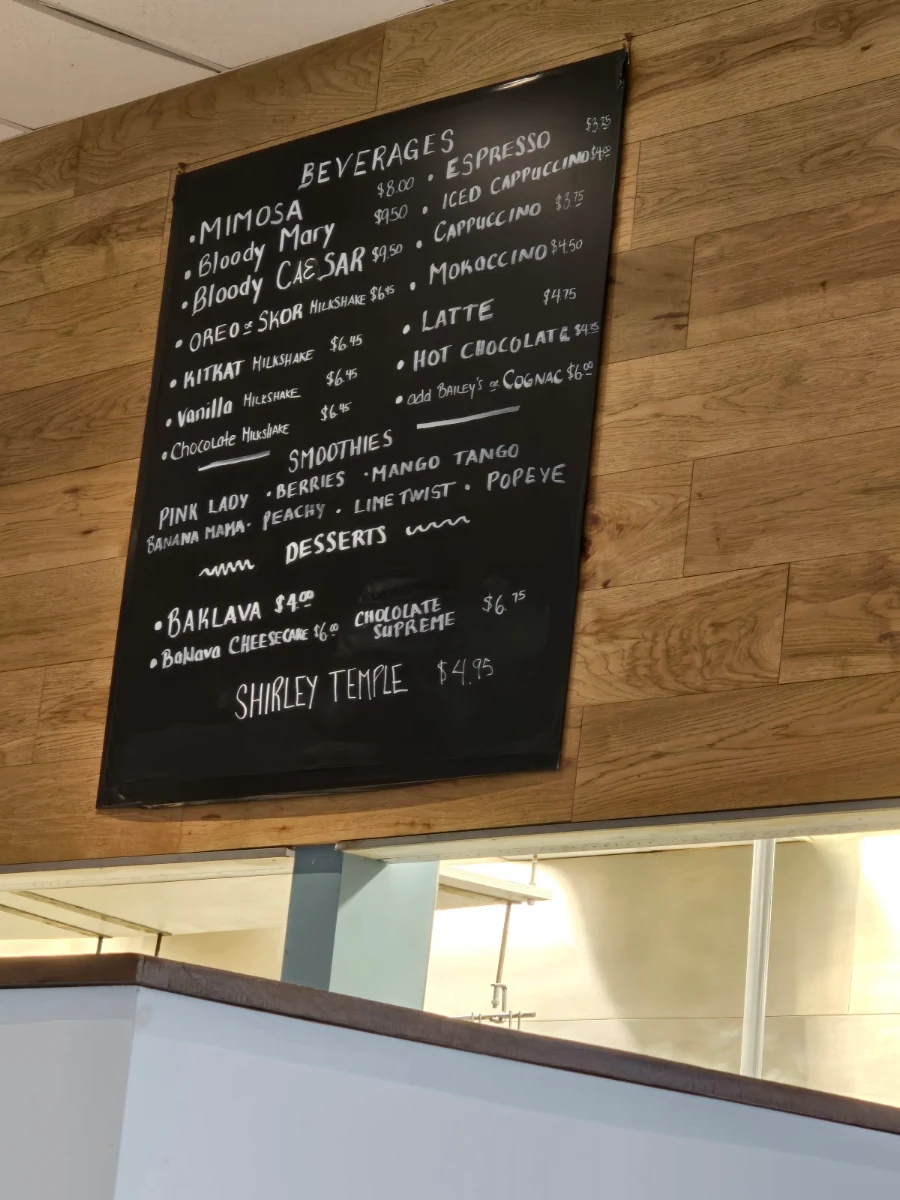 BEVERAGES
• MIMOSA $8.00
• Bloody Mary $9.50
• Bloody CAESAR $9.50
• OREO or SKOR MILKSHAKE $6.45
• KITKAT MILKSHAKE $6.45
• Vanilla MILKSHAKE $6.45
• Chocolate MILKSHAKE $6.45
• ESPRESSO $3.25
• ICED CAPPUCCINO $4.00
• CAPPUCCINO $3.75
• MOKOCCINO $4.50
• LATTE $4.75
• HOT CHOCOLATE
• add BAILEY'S or COGNAC $6.00
SMOOTHIES
PINK LADY • BERRIES • MANGO TANGO
BANANA MAMA • PEACHY • LIME TWIST • POPEYE
DESSERTS
• BAKLAVA $4.00
• Baklava CHEESECAKE $6.00
CHOLOLATE SUPREME $6.75
SHIRLEY TEMPLE $4.95